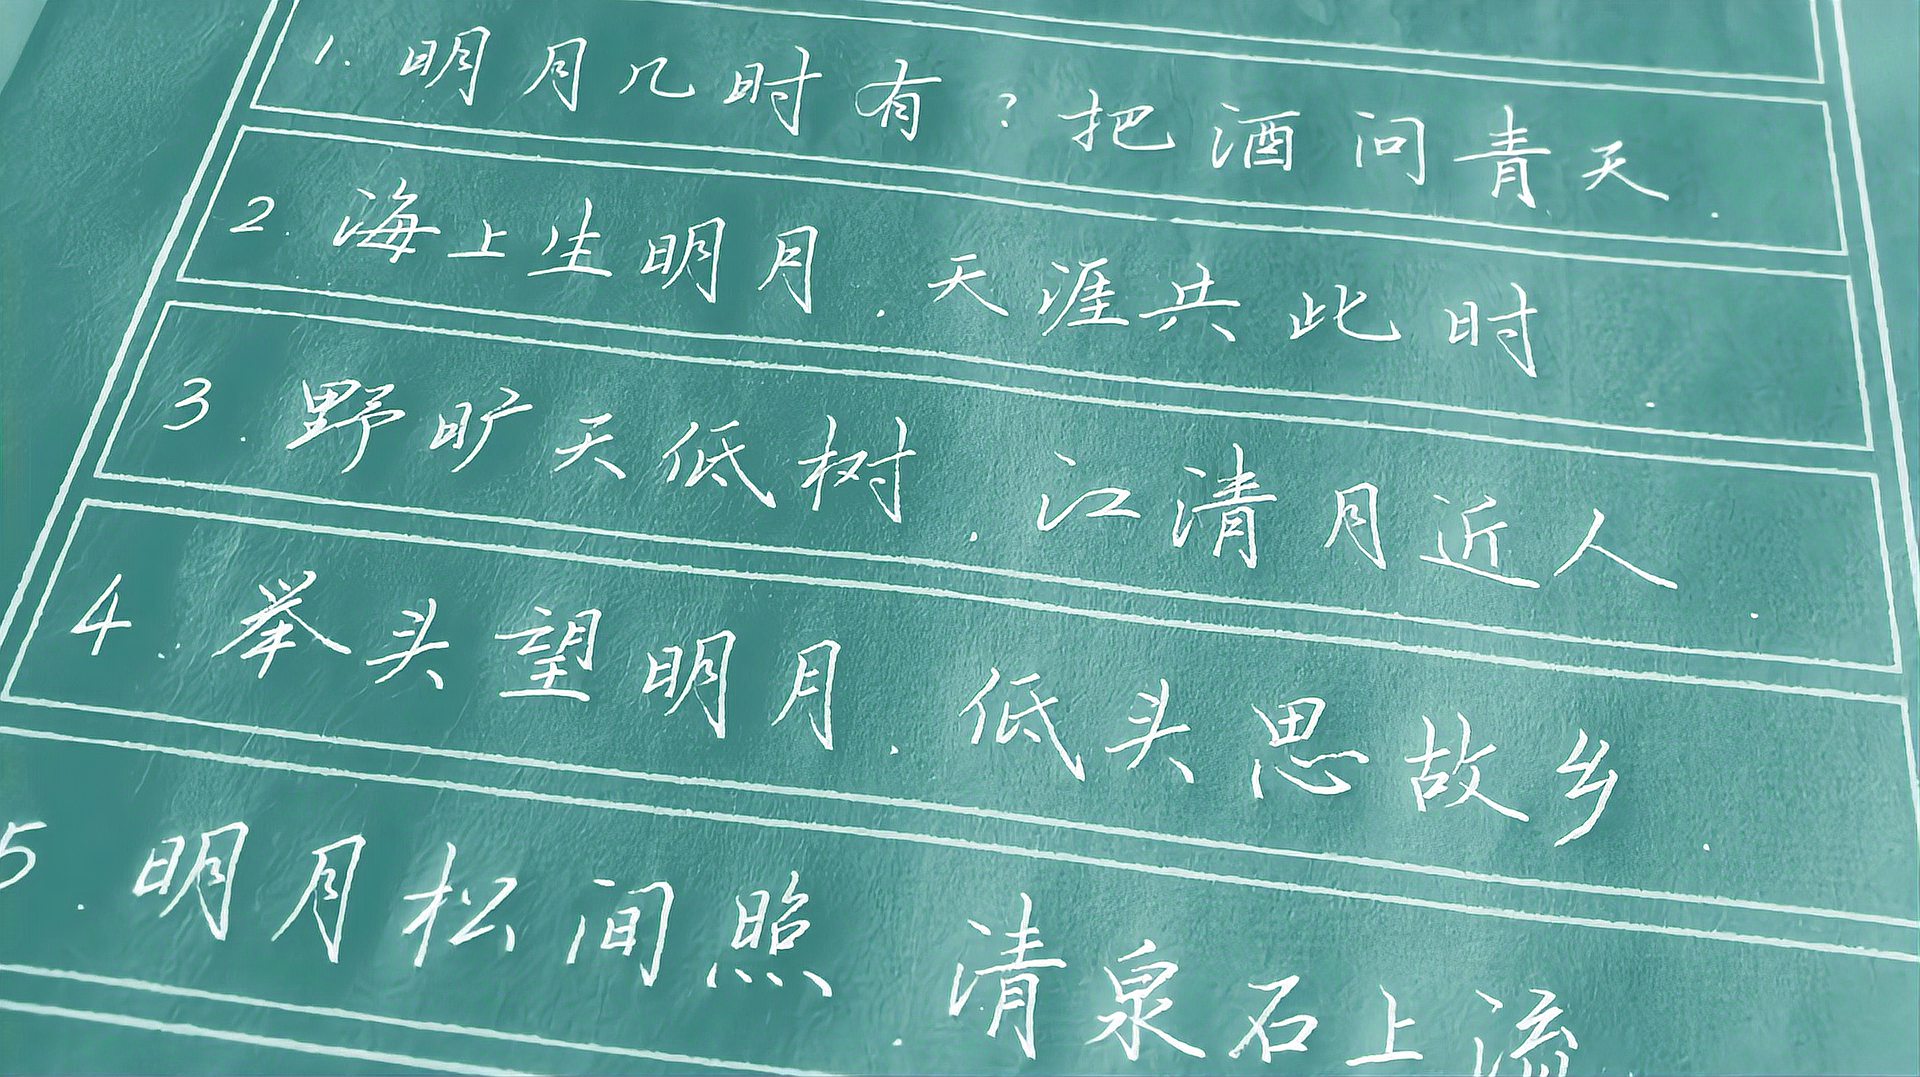 1. 明月几时有？把酒问青天.
2. 海上生明月.天涯共此时.
3. 野旷天低树.江清月近人.
4. 举头望明月.低头思故乡.
5. 明月松间照.清泉石上流